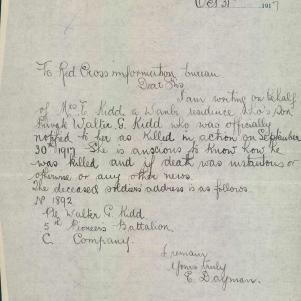 Oct 31st 1917
To Red Cross information bureau
Dear Sirs
I am writing on behalf
of Mrs T. Kidd a residence who's son
Private Walter G. Kidd who was officially
reported to her as killed in action on September
30th 1917. She is anxious to know how he
was killed and if death was instantous or
otherwise or any other news.
The deceased soldiers address is as follows.
No 1892
Pte Walter G. Kidd
5th Pioneers Battalion.
C. Company.
I remain
Yours truly
E. Dayman.